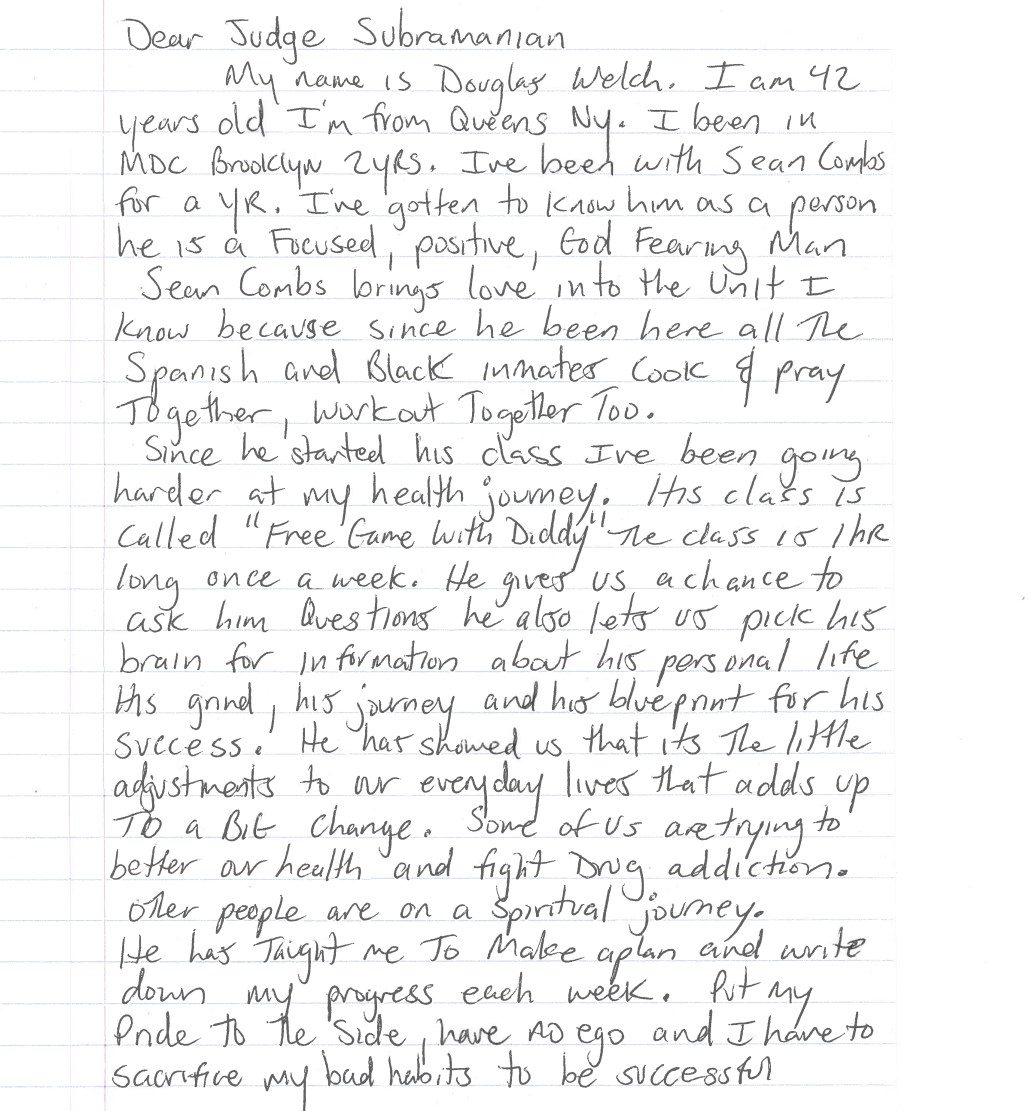 Dear Judge Subramanian
My name is Douglas Welch. I am 42
years old I'm from Queens Ny. I been in
MDC Brooklyn 2yRS. I've been with Sean Combs
for a yR. I've gotten to know him as a person
he is a Focused, positive, God Fearing Man
Sean Combs brings love into the Unit I
know because since he been here all The
Spanish and Black inmates Cook & pray
Together, workout Together Too.
Since he started his class I've been going
harder at my health journey. His class is
called "Free Game With Diddy" The class is 1hR
long once a week. He gives us a chance to
ask him Questions he also lets us pick his
brain for information about his personal life
His grind, his journey and his blueprint for his
success. He has showed us that its The little
adjustments to our everyday lives that adds up
TO a BIG change. Some of us are trying to
better our health and fight Drug addiction.
other people are on a spiritual journey.
He has Taught me To Make a plan and write
down my progress each week. Put my
Pride to the Side, have NO ego and I have to
sacrifice my bad habits to be successful